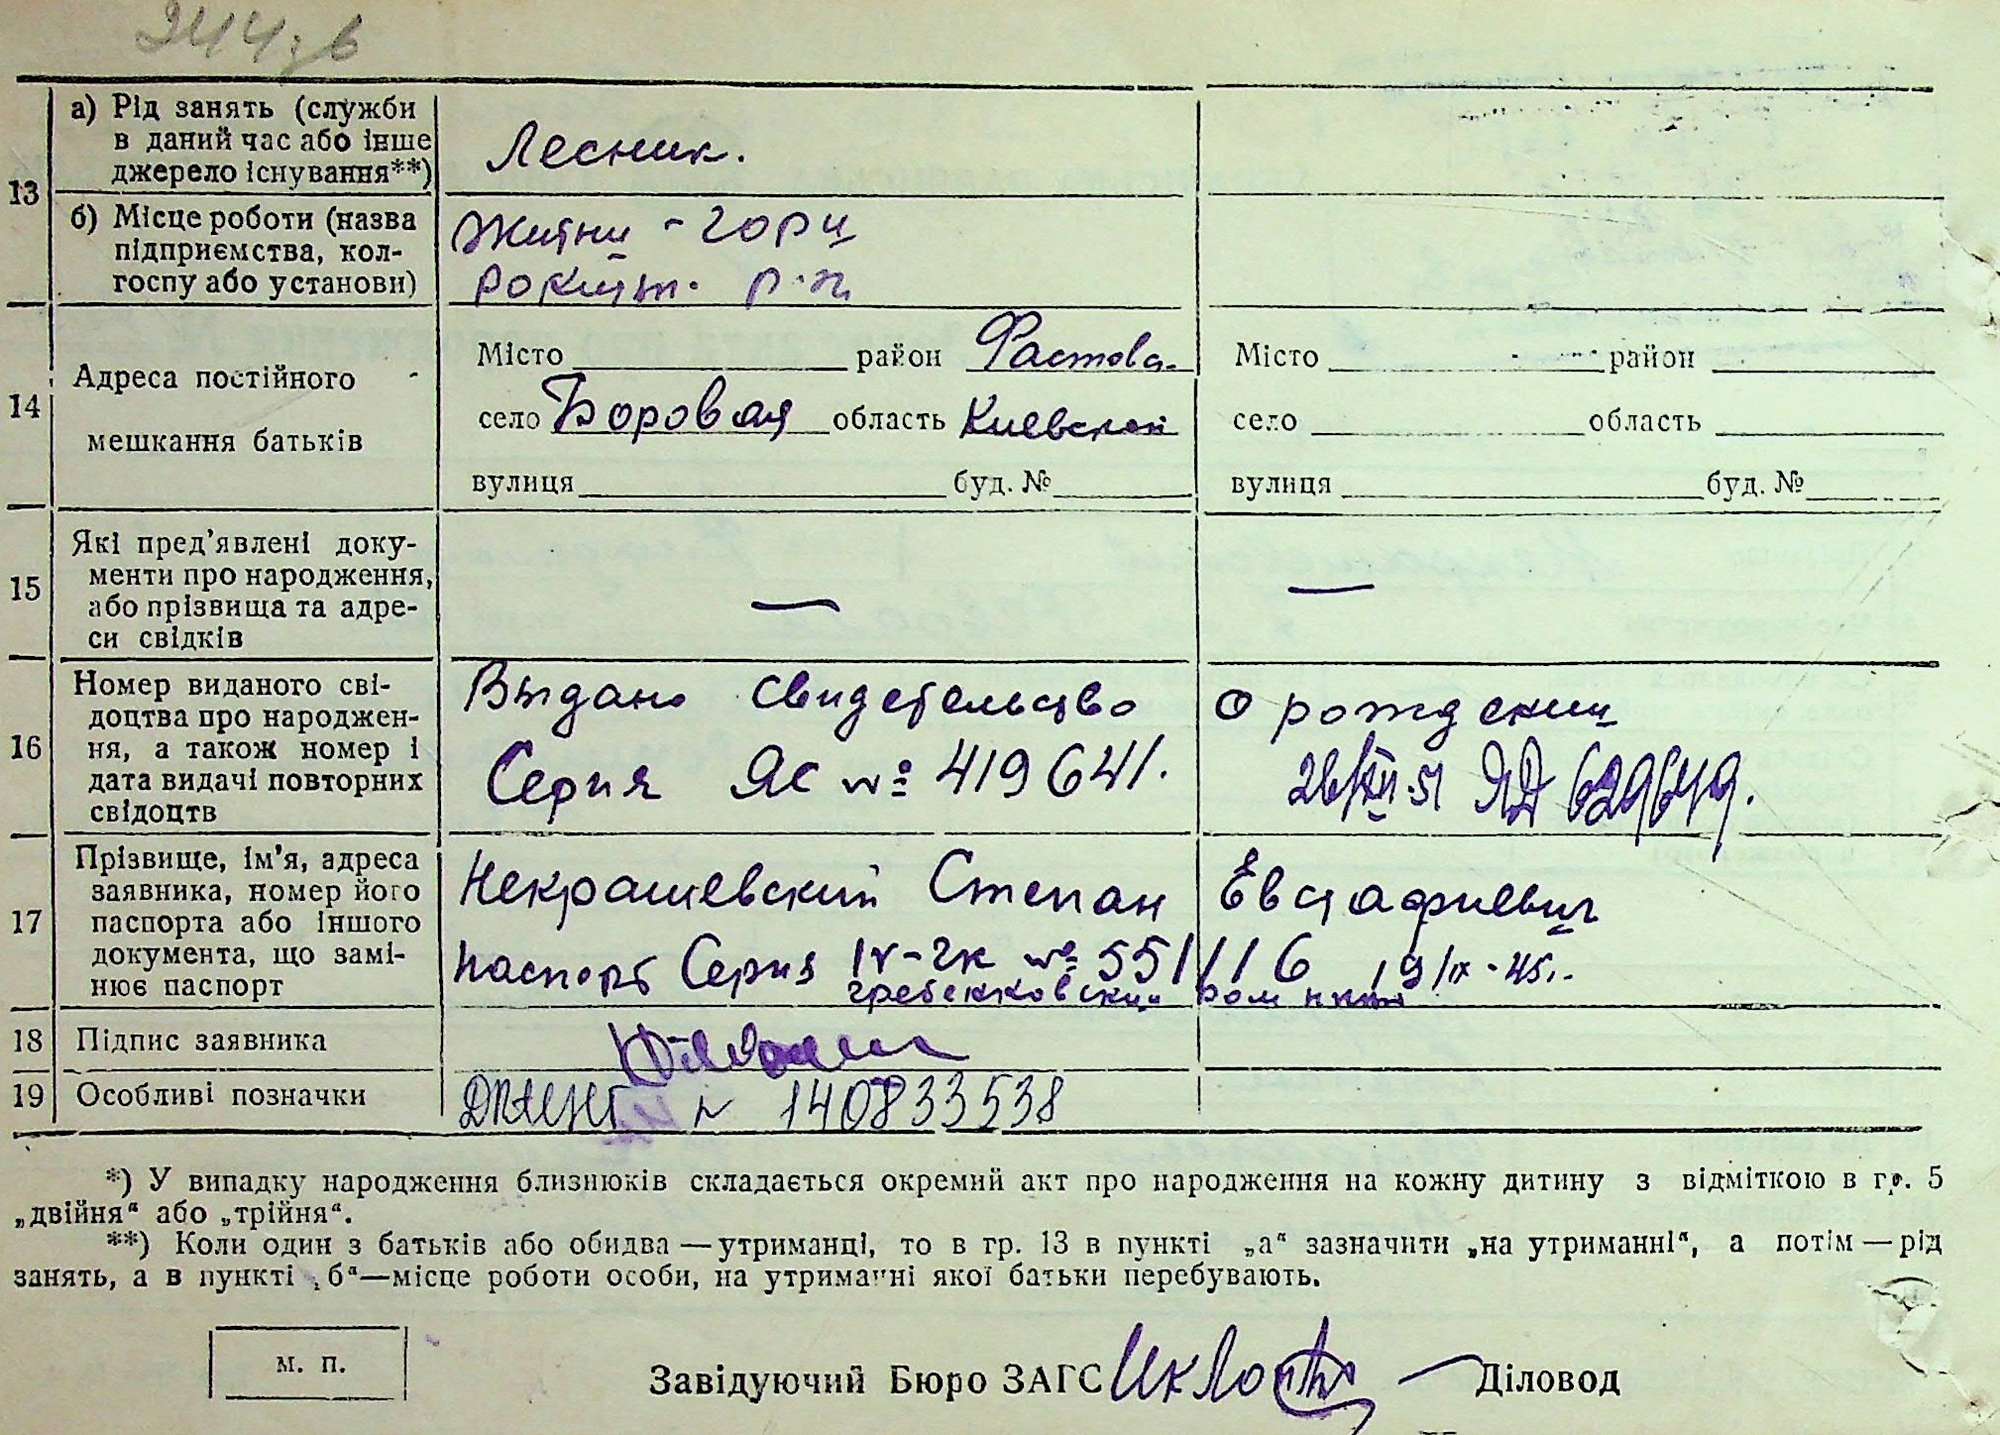 244зв
13
а) Рід занять (служби
в даний час або інше
джерело існування**)
Лесник.
б) Місце роботи (назва
підприємства, кол-
госпу або установи)
Житни - горы
Рокитн. р-н
14
Адреса постійного
мешкання батьків
Місто район Фастовс.
село Боровая область Киевской
вулиця буд. №
Місто район
село область
вулиця буд. №
15
Які пред'явлені доку-
менти про народження,
або прізвища та адре-
си свідків
—
—
16
Номер виданого сві-
доцтва про народжен-
ня, а також номер і
дата видачі повторних
свідоцтв
Выдано свидетельство о рождении
Серия ЯС № 419641.
26/XII-51 ЯД 629649.
17
Прізвище, ім'я, адреса
заявника, номер його
паспорта або іншого
документа, що замі-
нює паспорт
Некрашевский Степан Евстафиевич
паспорт Серия IV-ГК № 551116 19/IX-45г.
гребенковский ром нкт
18
Підпис заявника
19
Особливі позначки
№ 140833538
*) У випадку народження близнюків складається окремий акт про народження на кожну дитину з відміткою в гр. 5
„двійня“ або „трійня“.
**) Коли один з батьків або обидва — утриманці, то в гр. 13 в пункті „а“ зазначити „на утриманні“, а потім — рід
занять, а в пункті „б“—місце роботи особи, на утриманні якої батьки перебувають.
м. п.
Завідуючий Бюро ЗАГС
Діловод